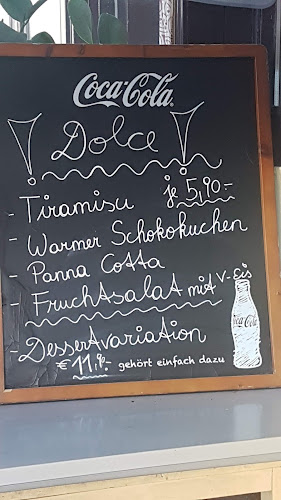 Coca-Cola
! Dolce !
- Tiramisu je 5,90.-
- Warmer Schokokuchen
- Panna Cotta
- Fruchtsalat mit V-Eis
- Dessertvariation
€ 11,90.- gehört einfach dazu
Coca-Cola